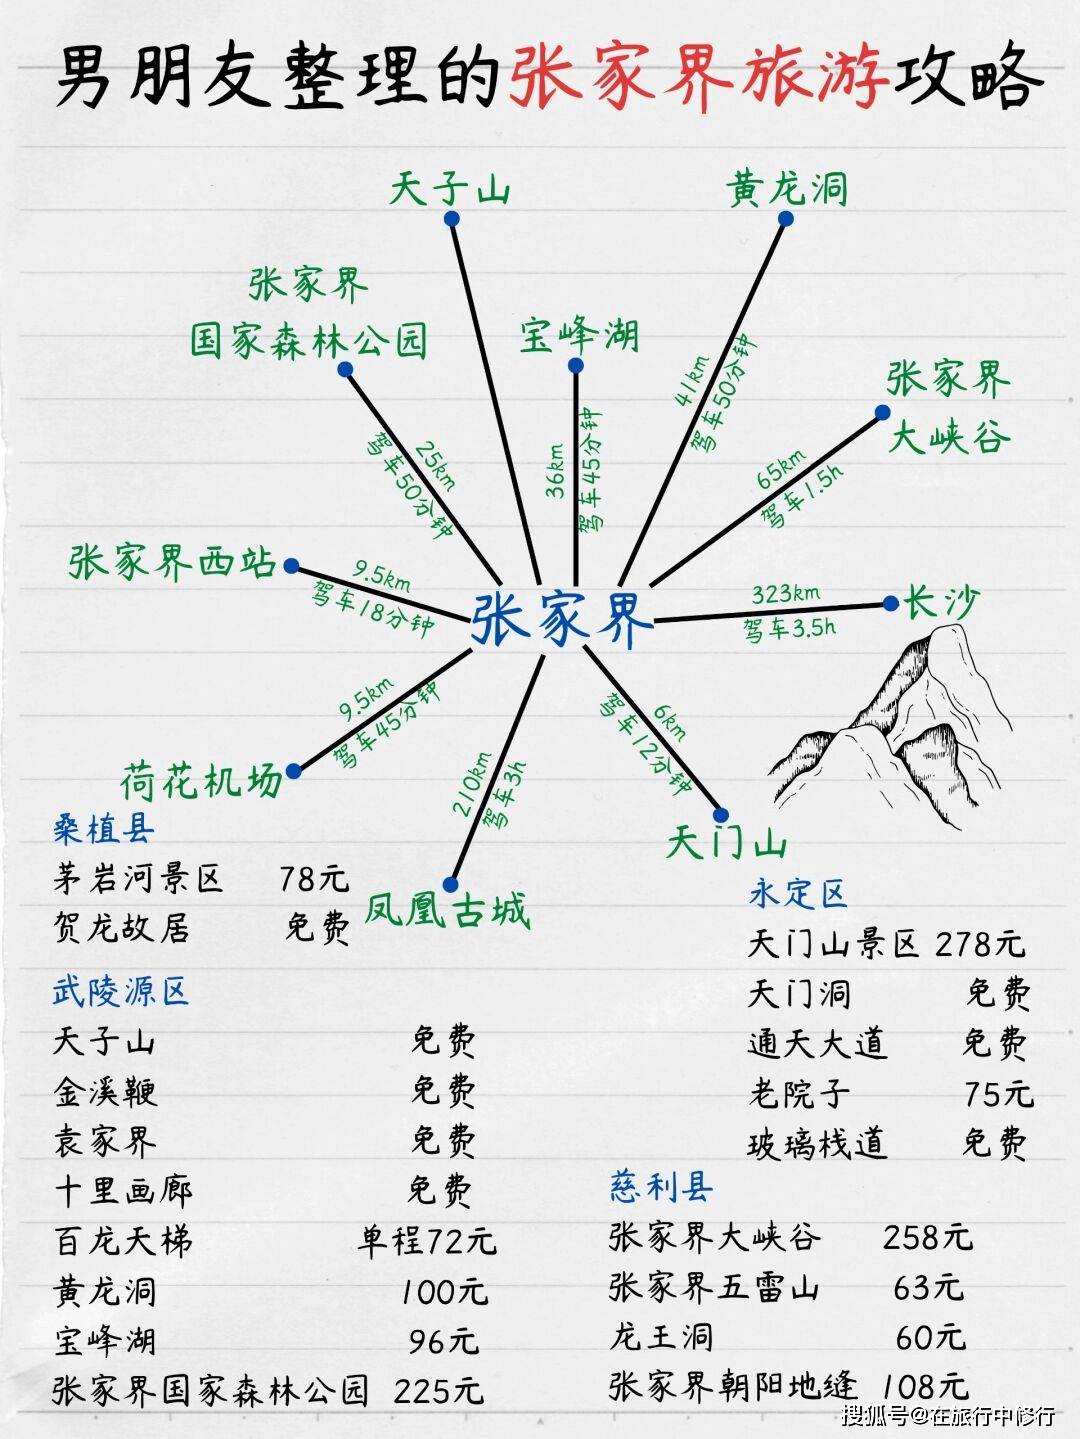 男朋友整理的张家界旅游攻略
天子山
黄龙洞
张家界
国家森林公园
宝峰湖
张家界
大峡谷
25km
驾车50分钟
36km
驾车45分钟
41km
驾车50分钟
65km
驾车1.5h
张家界西站
9.5km
驾车18分钟
张家界
323km
驾车3.5h
长沙
9.5km
驾车45分钟
荷花机场
210km
驾车3h
凤凰古城
6km
驾车12分钟
天门山
桑植县
茅岩河景区 78元
贺龙故居 免费
武陵源区
天子山 免费
金溪鞭 免费
袁家界 免费
十里画廊 免费
百龙天梯 单程72元
黄龙洞 100元
宝峰湖 96元
张家界国家森林公园 225元
永定区
天门山景区 278元
天门洞 免费
通天大道 免费
老院子 75元
玻璃栈道 免费
慈利县
张家界大峡谷 258元
张家界五雷山 63元
龙王洞 60元
张家界朝阳地缝 108元
搜狐号@在旅行中修行